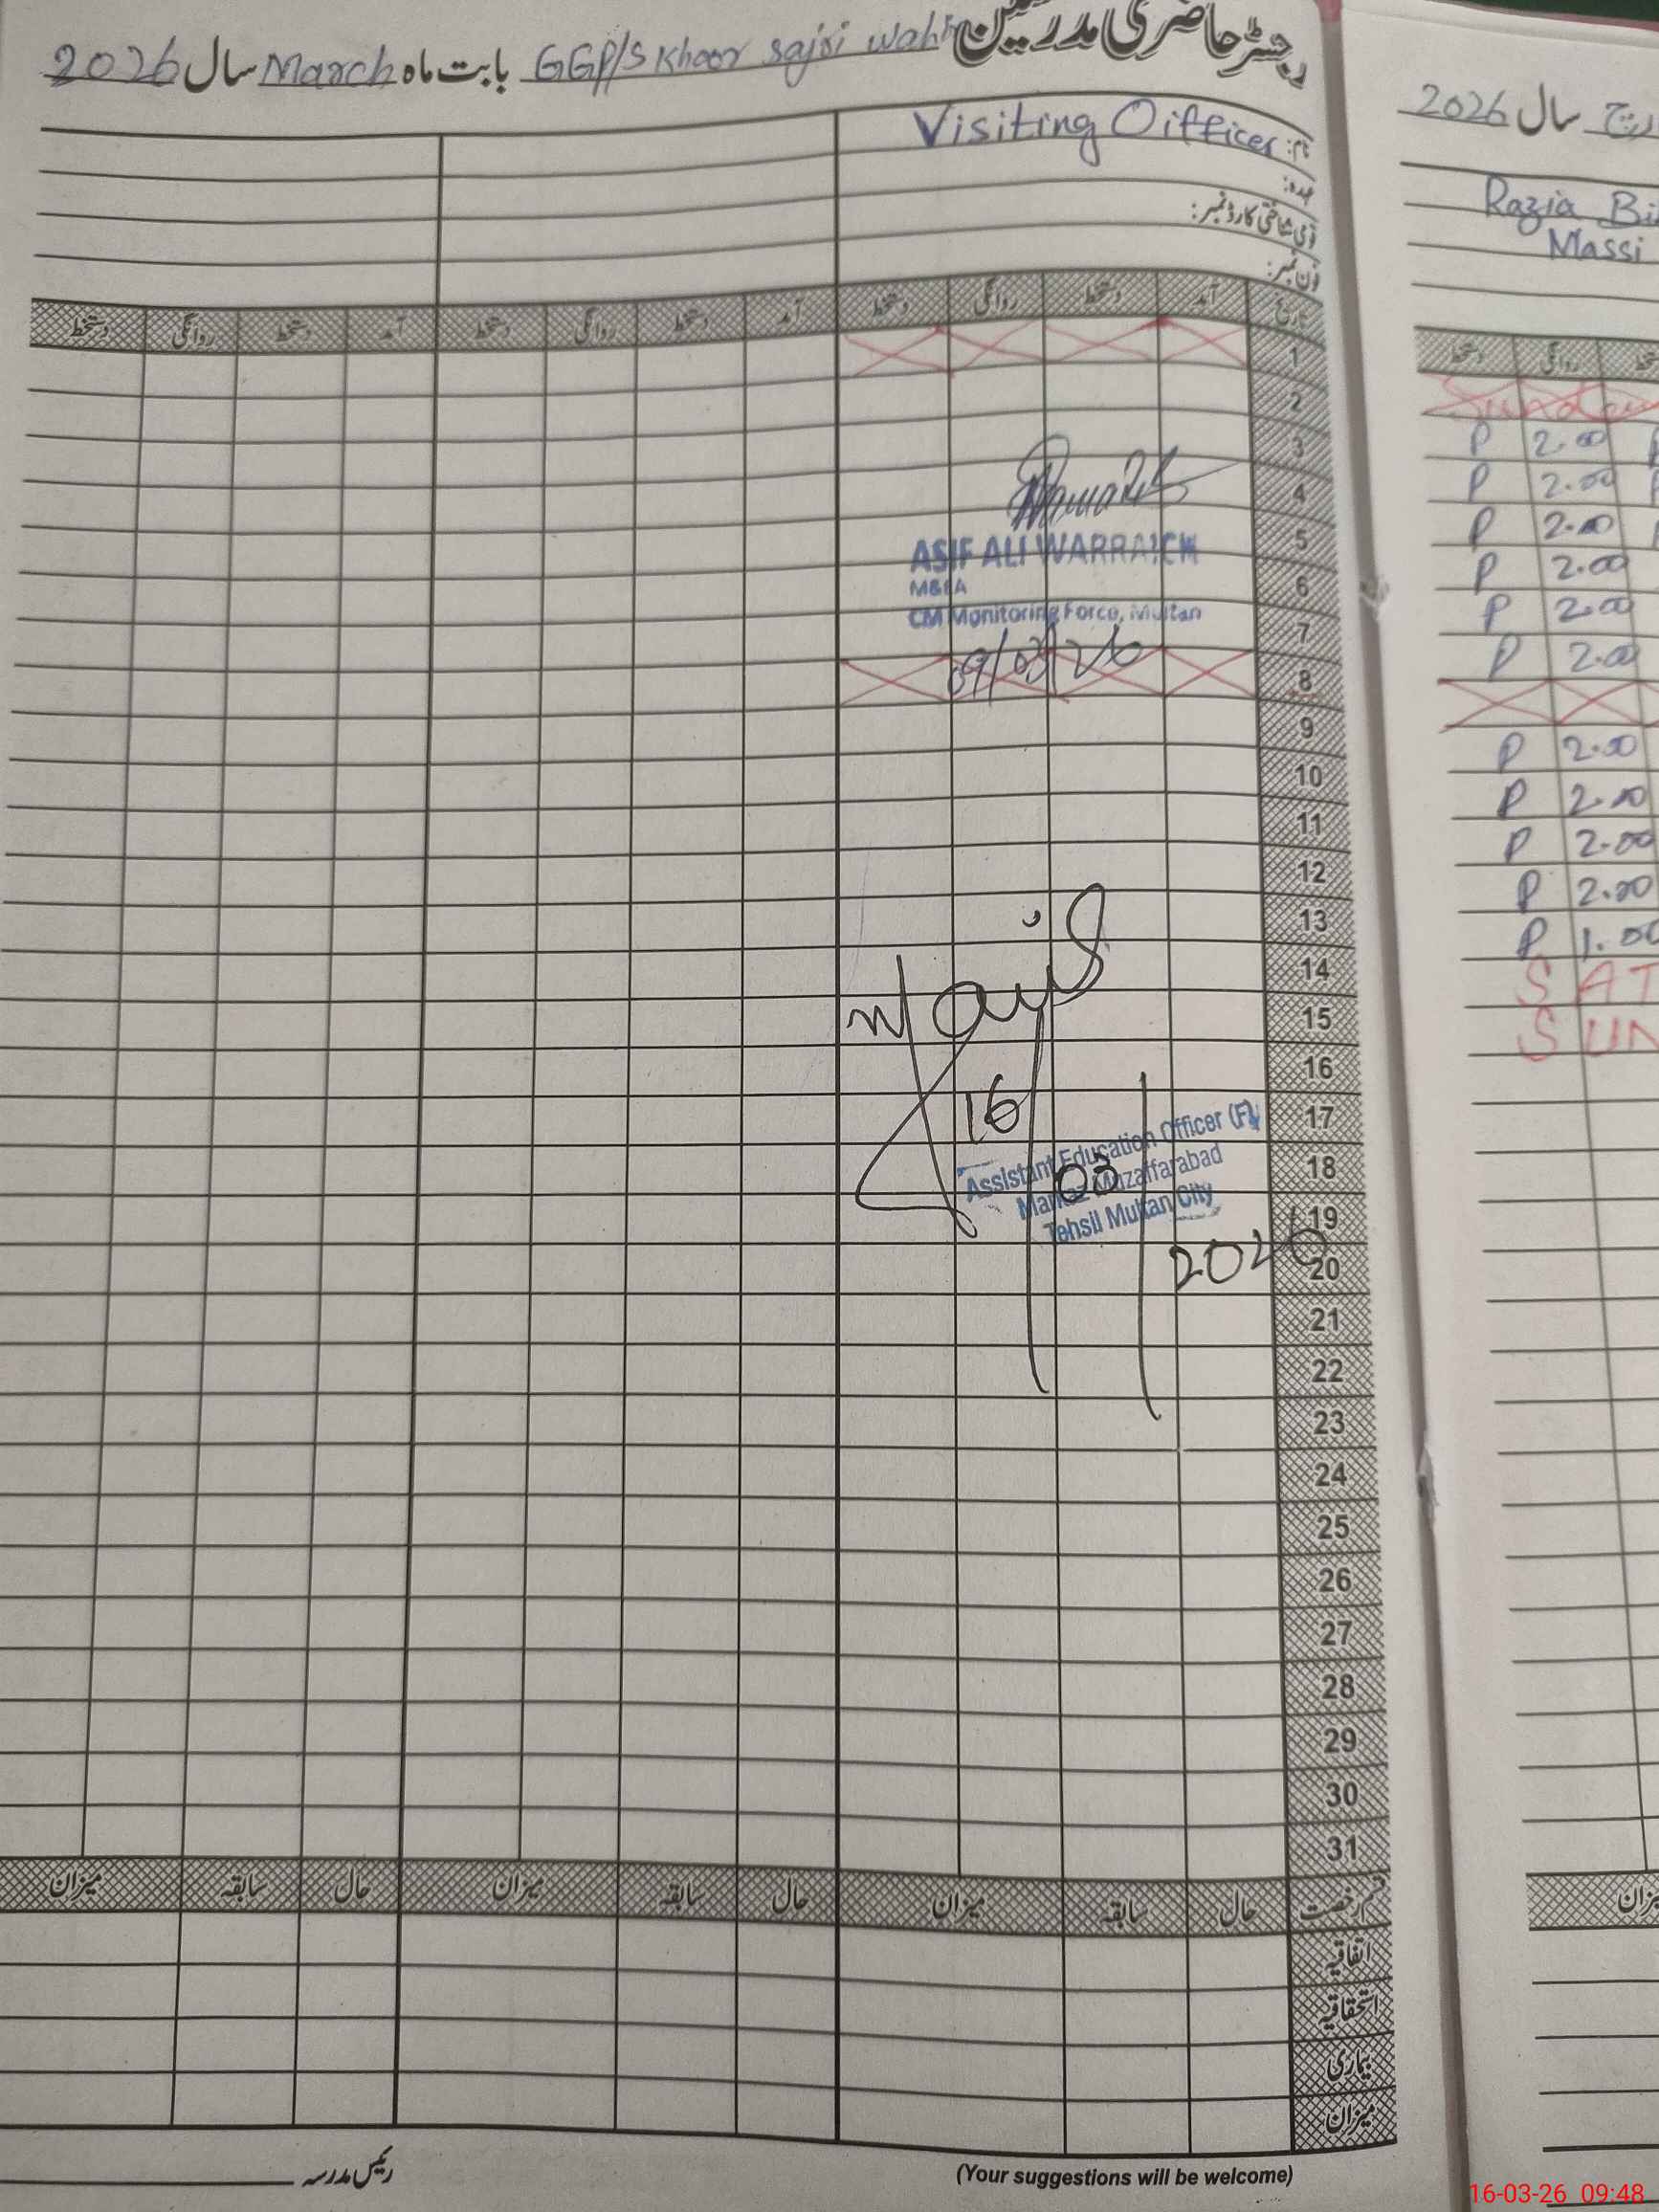 رجسٹر حاضری مدرسین GGP/S Khoor sajri wahn بابت ماہ March سال 2026
نام: Visiting Oifficer
عہدہ:
قومی شناختی کارڈ نمبر:
فون نمبر:
تاریخ آمد دستخط روانگی دستخط آمد دستخط روانگی دستخط آمد دستخط روانگی دستخط
1
2
3
4
5
ASIF ALI WARRAICH
6
M&EA
7
CM Monitoring Force, Multan
8
09/03/26
9
10
11
12
13
14
15
16
17
16/03/2026
Assistant Education Officer (F)
18
Markaz Muzaffarabad
19
Tehsil Multan City
20
21
22
23
24
25
26
27
28
29
30
31
قسم رخصت حال سابقہ میزان حال سابقہ میزان حال سابقہ میزان
اتفاقیہ
استحقاقیہ
بیماری
میزان
(Your suggestions will be welcome)
رئیس مدرسہ
سال 2026
Razia Bi
Massi
روانگی دستخط
Sunday
P 2.00
P 2.00
P 2.00
P 2.00
P 2.00
P 2.00
P 2.00
P 2.00
P 2.00
P 2.00
P 1.00
SAT
SUN
میزان
16-03-26 09:48